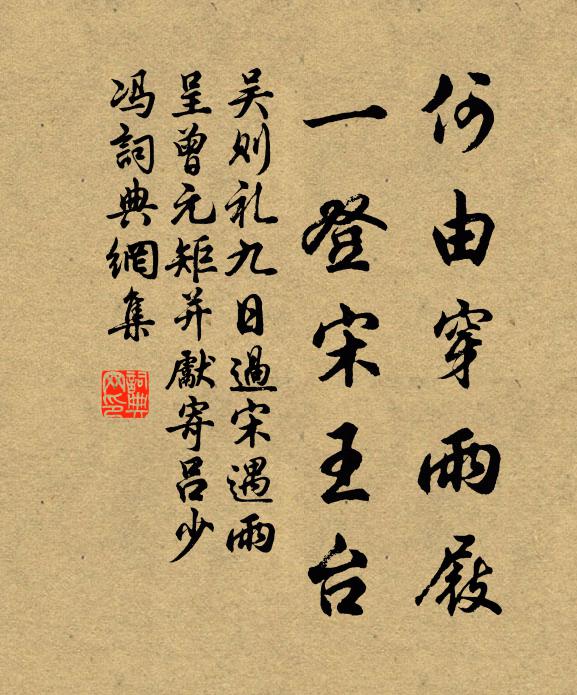 何由穿雨屐
一登宋王台
吴则礼九日過宋遇雨
呈曾元矩并獻寄吕少
冯詞典網集
詞典网印